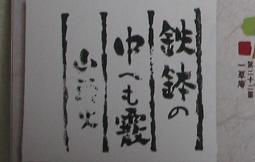 鉄鉢の
中へも霰
山頭火
第二十二番
一草庵